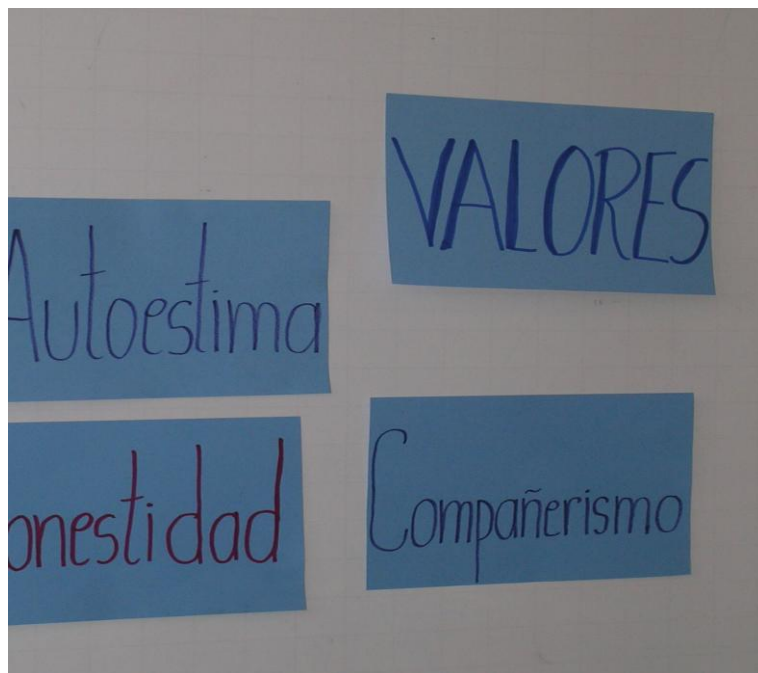 VALORES
Autoestima
onestidad
Compañerismo